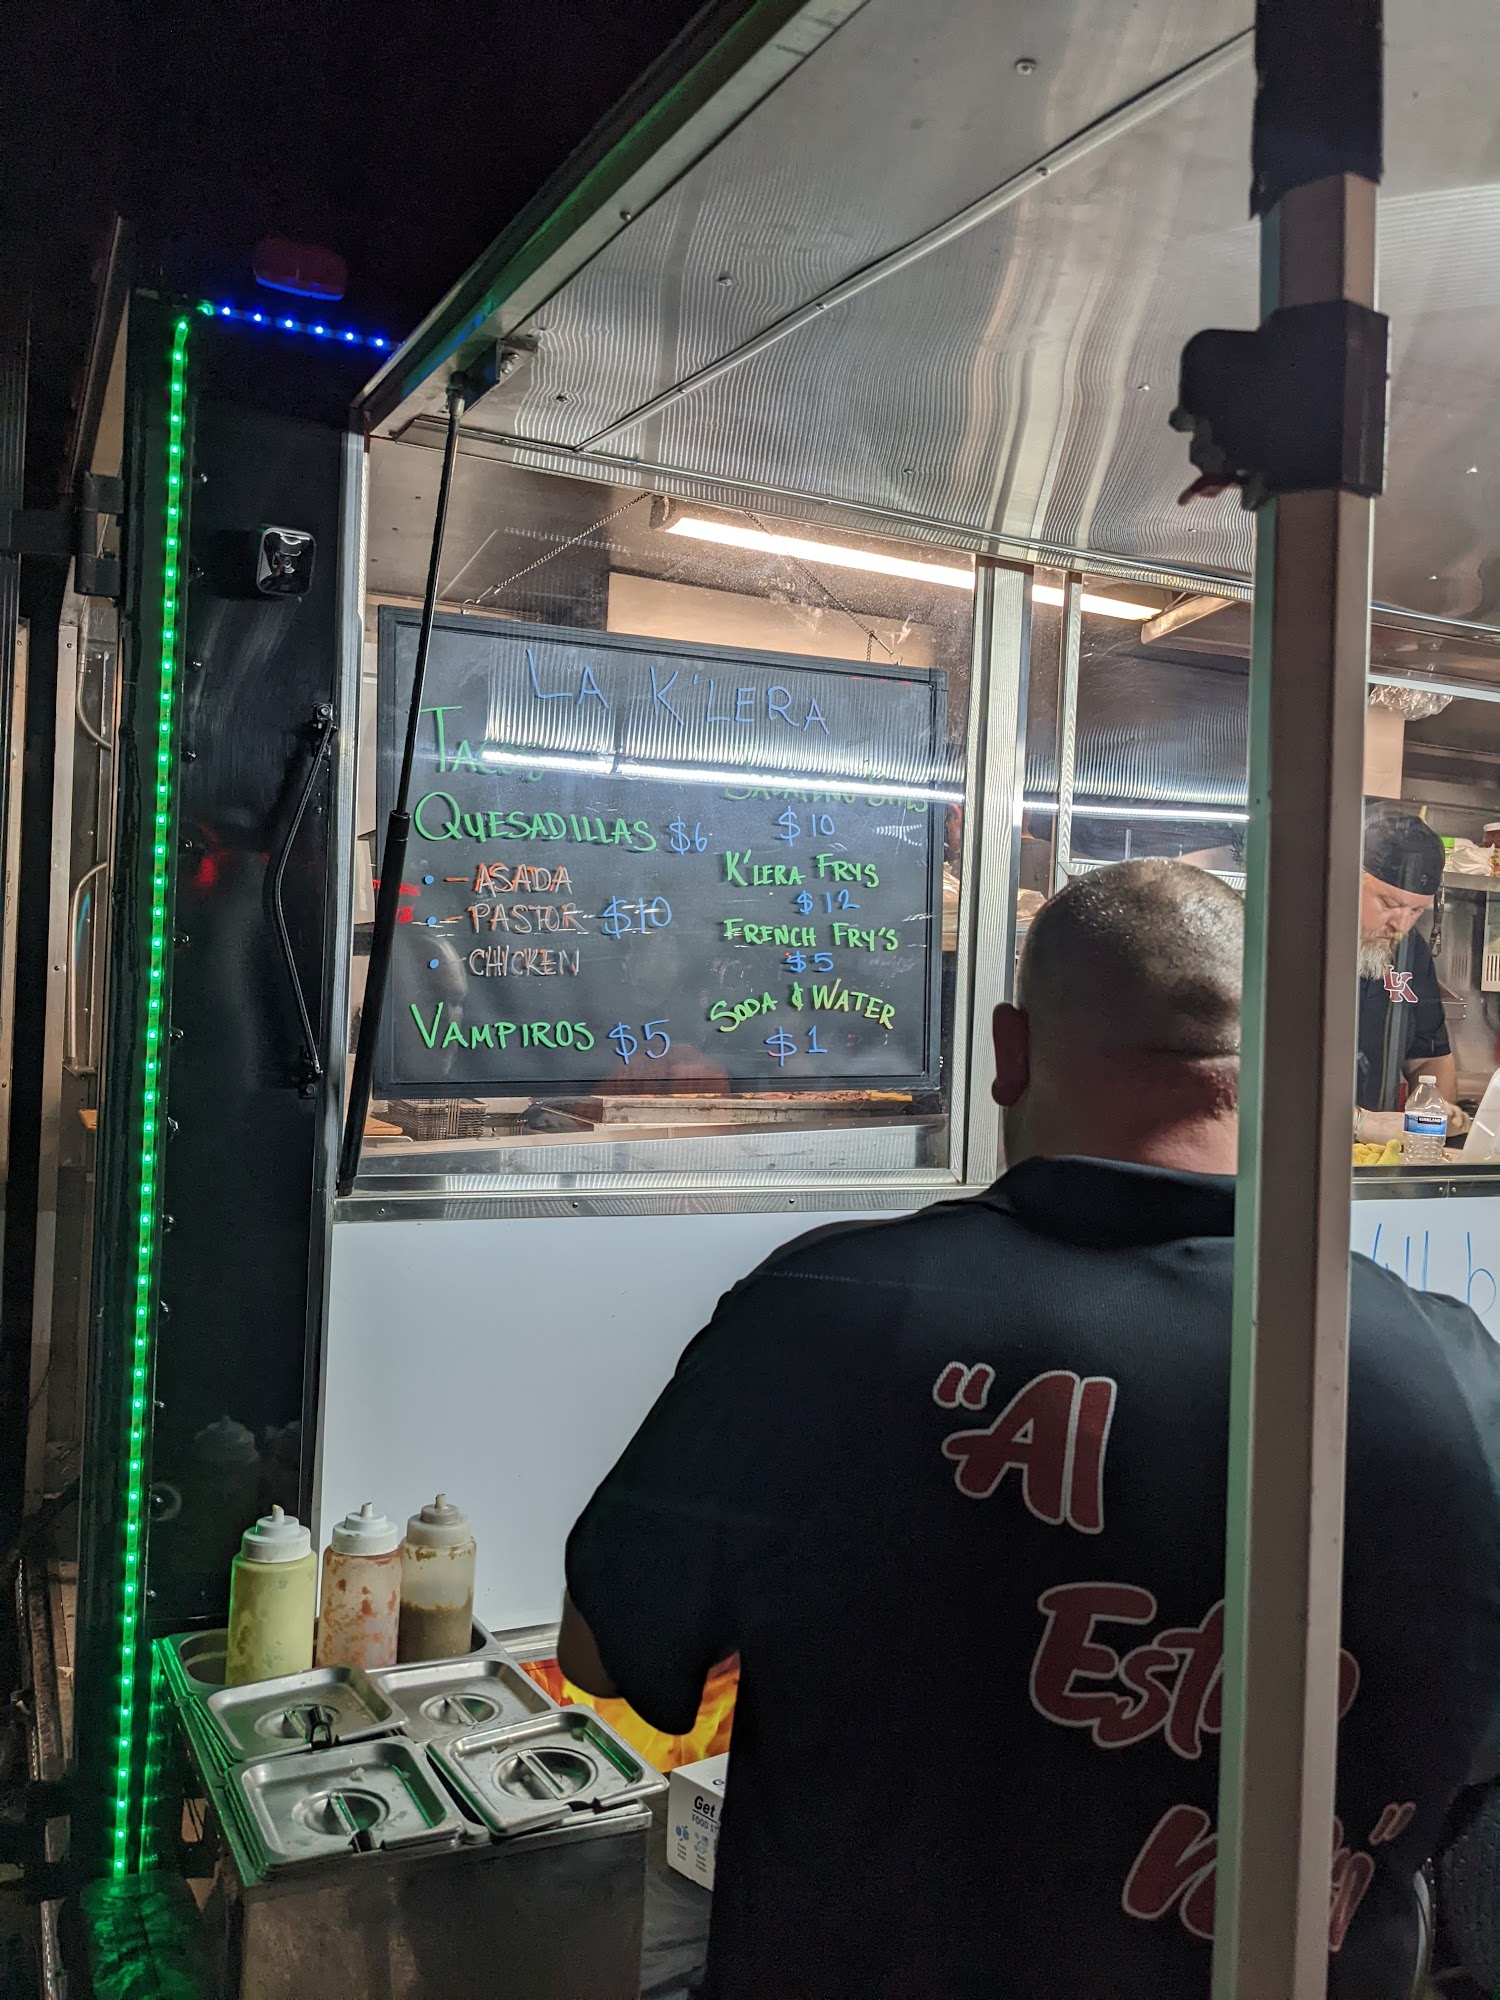 LA K'LERA
TACOS
QUESADILLAS $6
- ASADA
- PASTOR $10
- CHICKEN
VAMPIROS $5
$10
K'LERA FRYS
$12
FRENCH FRY'S
$5
SODA & WATER
$1
LK
KIRKLAND
"Al
Get
FOOD